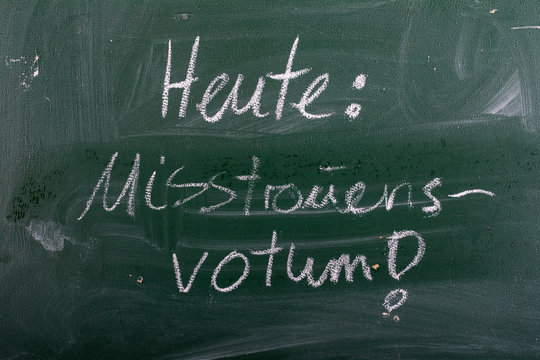 Heute:
Misstrauens-
votum!